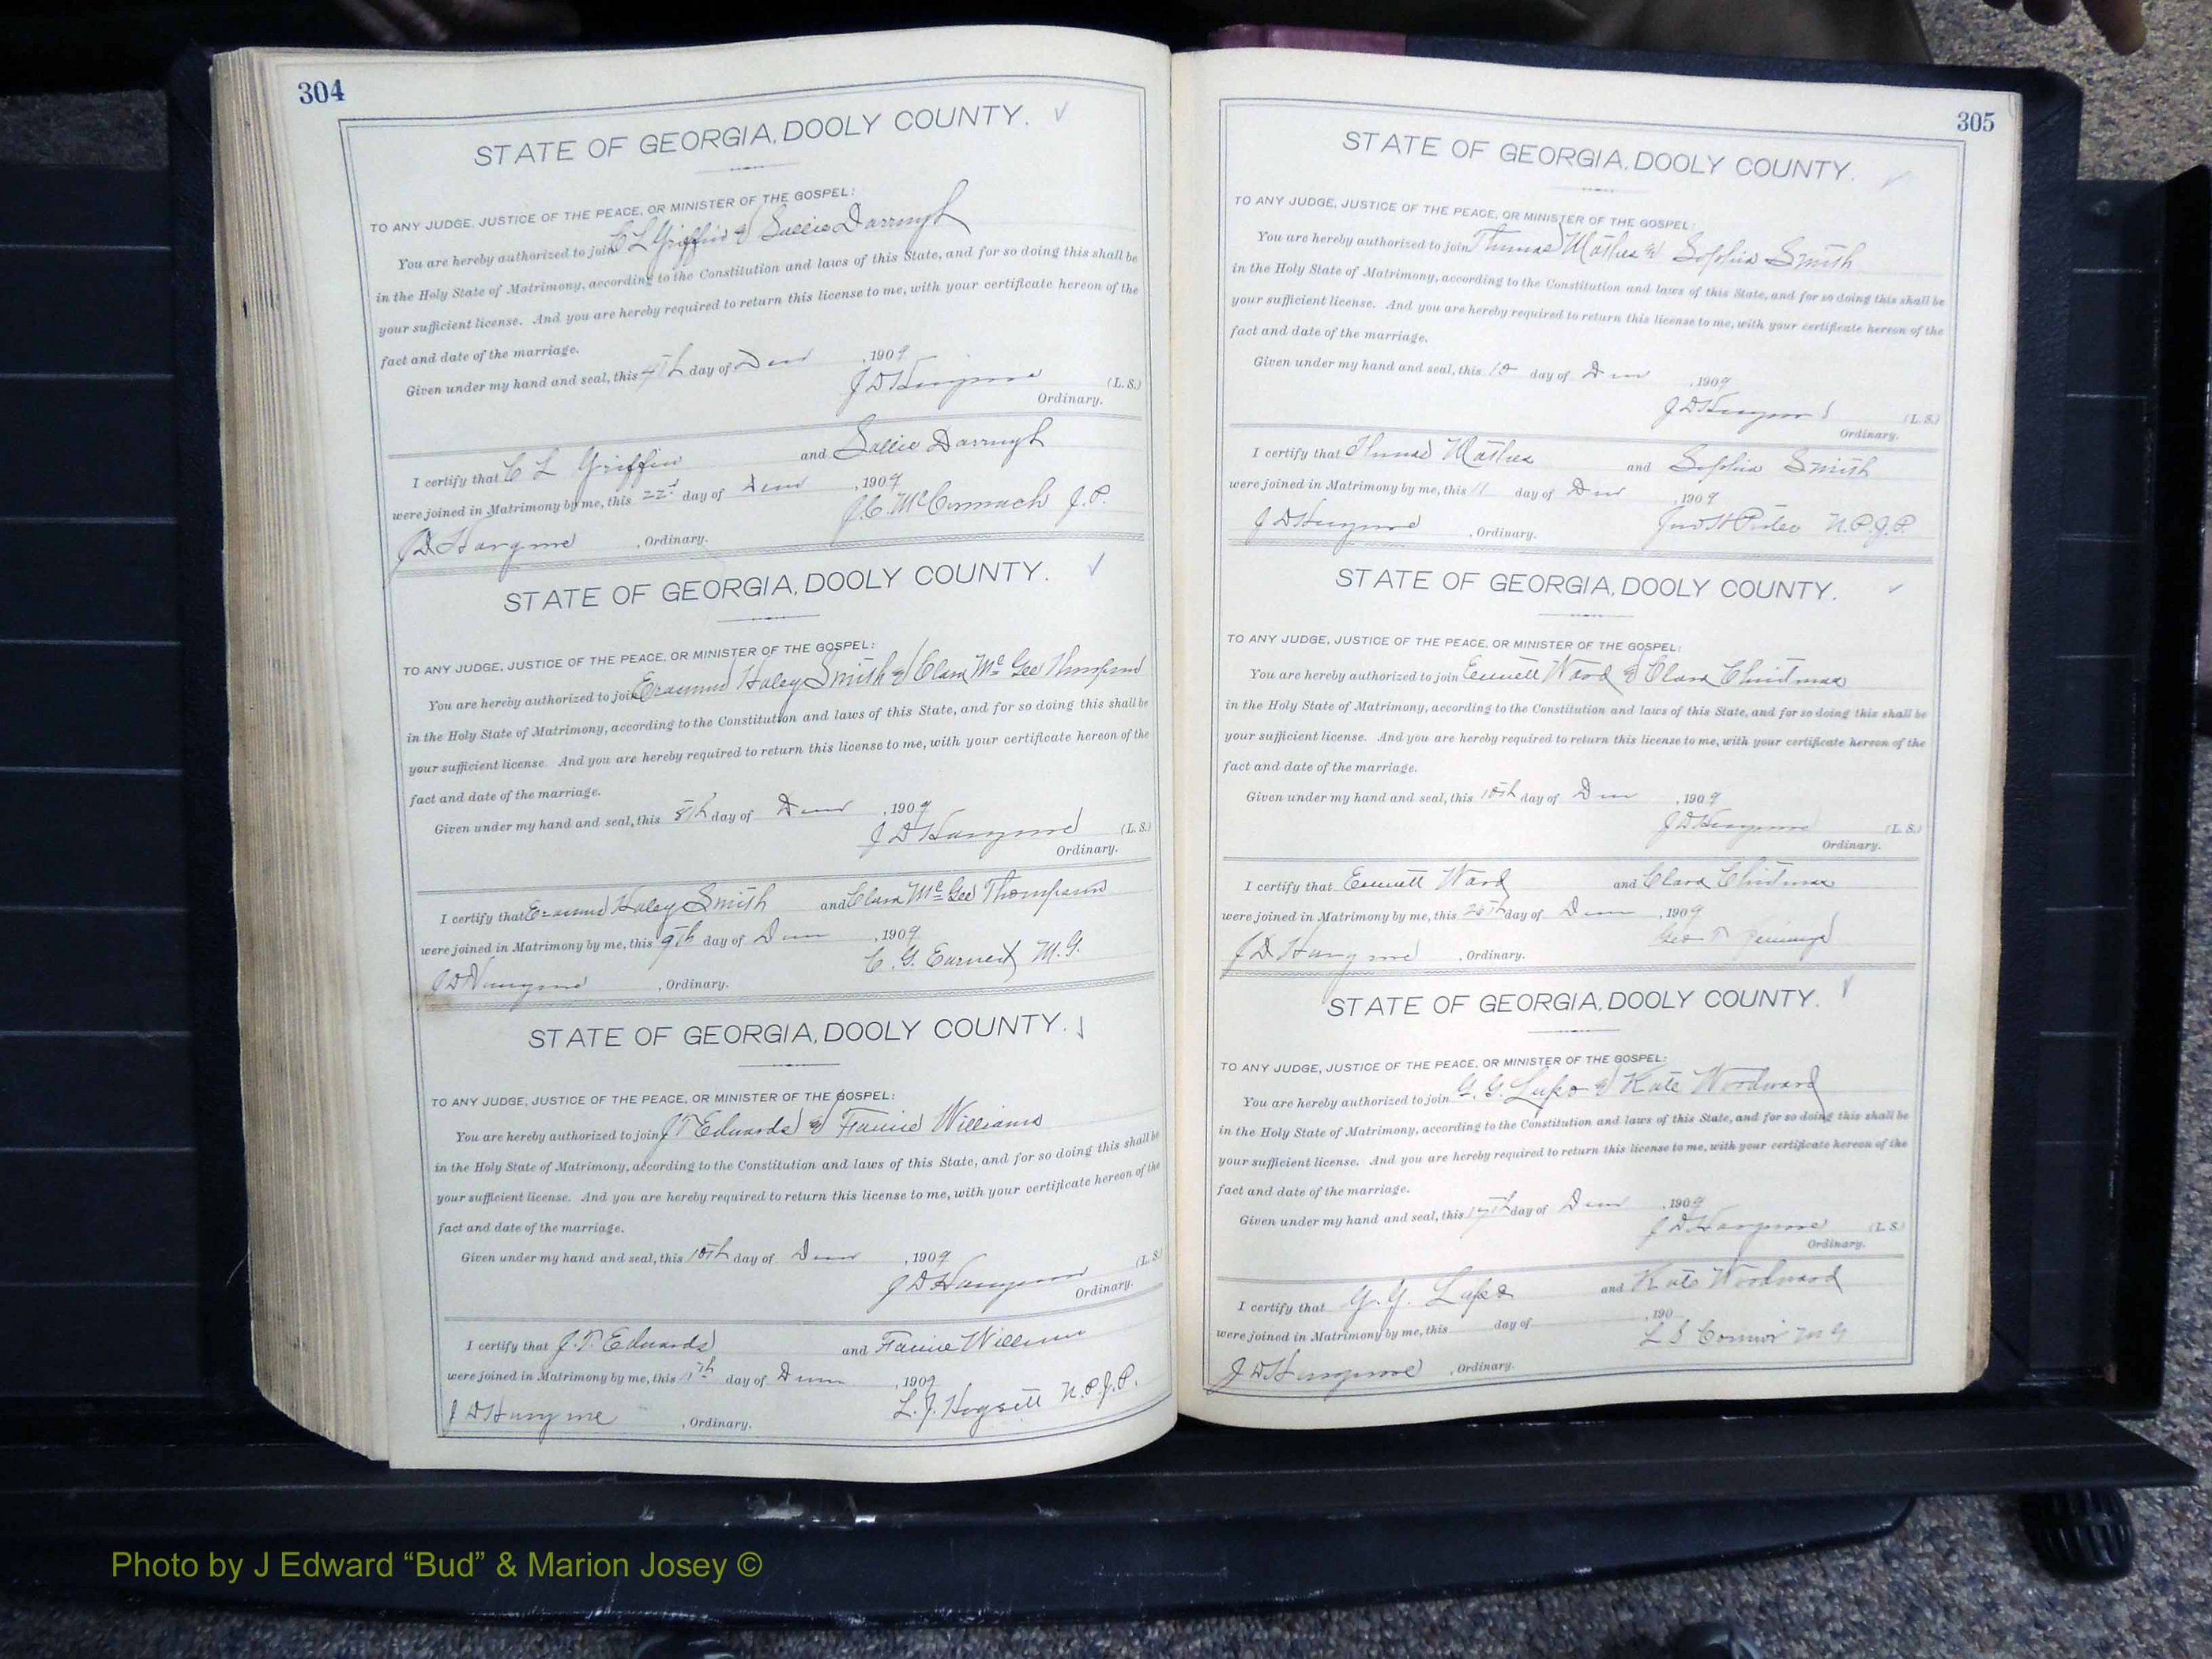 304
STATE OF GEORGIA, DOOLY COUNTY.
TO ANY JUDGE, JUSTICE OF THE PEACE, OR MINISTER OF THE GOSPEL:
You are hereby authorized to join C L Griffin & Sallie
in the Holy State of Matrimony, according to the Constitution and laws of this State, and for so doing this shall be
your sufficient license. And you are hereby required to return this license to me, with your certificate hereon of the
fact and date of the marriage.
Given under my hand and seal, this day of , 1909
J D (L. S.)
Ordinary.
I certify that C L Griffin and Sallie
were joined in Matrimony by me, this 22d day of , 1909
J. C. McCormack J. P.
J D , Ordinary.
STATE OF GEORGIA, DOOLY COUNTY.
TO ANY JUDGE, JUSTICE OF THE PEACE, OR MINISTER OF THE GOSPEL:
You are hereby authorized to join Haley Smith & Clara Mc Gee Thompson
in the Holy State of Matrimony, according to the Constitution and laws of this State, and for so doing this shall be
your sufficient license. And you are hereby required to return this license to me, with your certificate hereon of the
fact and date of the marriage.
Given under my hand and seal, this 8th day of , 1909
J D (L. S.)
Ordinary.
I certify that Haley Smith and Clara Mc Gee Thompson
were joined in Matrimony by me, this 9th day of , 1909
C. G. Earnest M. G.
J D , Ordinary.
STATE OF GEORGIA, DOOLY COUNTY.
TO ANY JUDGE, JUSTICE OF THE PEACE, OR MINISTER OF THE GOSPEL:
You are hereby authorized to join J T Edwards & Fannie Williams
in the Holy State of Matrimony, according to the Constitution and laws of this State, and for so doing this shall be
your sufficient license. And you are hereby required to return this license to me, with your certificate hereon of the
fact and date of the marriage.
Given under my hand and seal, this 10th day of , 1909
J D (L. S.)
Ordinary.
I certify that J. T. Edwards and Fannie
were joined in Matrimony by me, this day of , 1909
L. J. Hogsett N. P. J. P.
J D , Ordinary.
305
STATE OF GEORGIA, DOOLY COUNTY.
TO ANY JUDGE, JUSTICE OF THE PEACE, OR MINISTER OF THE GOSPEL:
You are hereby authorized to join Thomas & Sophia Smith
in the Holy State of Matrimony, according to the Constitution and laws of this State, and for so doing this shall be
your sufficient license. And you are hereby required to return this license to me, with your certificate hereon of the
fact and date of the marriage.
Given under my hand and seal, this 10 day of , 1909
J D (L. S.)
Ordinary.
I certify that Thomas and Sophia Smith
were joined in Matrimony by me, this 11 day of , 1909
N. P. J. P.
J D , Ordinary.
STATE OF GEORGIA, DOOLY COUNTY.
TO ANY JUDGE, JUSTICE OF THE PEACE, OR MINISTER OF THE GOSPEL:
You are hereby authorized to join Emmett Ward & Clara Christmas
in the Holy State of Matrimony, according to the Constitution and laws of this State, and for so doing this shall be
your sufficient license. And you are hereby required to return this license to me, with your certificate hereon of the
fact and date of the marriage.
Given under my hand and seal, this 10th day of , 1909
J D (L. S.)
Ordinary.
I certify that Emmett Ward and Clara Christmas
were joined in Matrimony by me, this day of , 1909
Geo T
J D , Ordinary.
STATE OF GEORGIA, DOOLY COUNTY.
TO ANY JUDGE, JUSTICE OF THE PEACE, OR MINISTER OF THE GOSPEL:
You are hereby authorized to join G. G. Lupo & Kate Woodward
in the Holy State of Matrimony, according to the Constitution and laws of this State, and for so doing this shall be
your sufficient license. And you are hereby required to return this license to me, with your certificate hereon of the
fact and date of the marriage.
Given under my hand and seal, this day of , 1909
J D Hargrove (L. S.)
Ordinary.
I certify that G. G. Lupo and Kate Woodward
were joined in Matrimony by me, this day of , 190
L S Connor M G
J D Hargrove , Ordinary.
Photo by J Edward “Bud” & Marion Josey ©